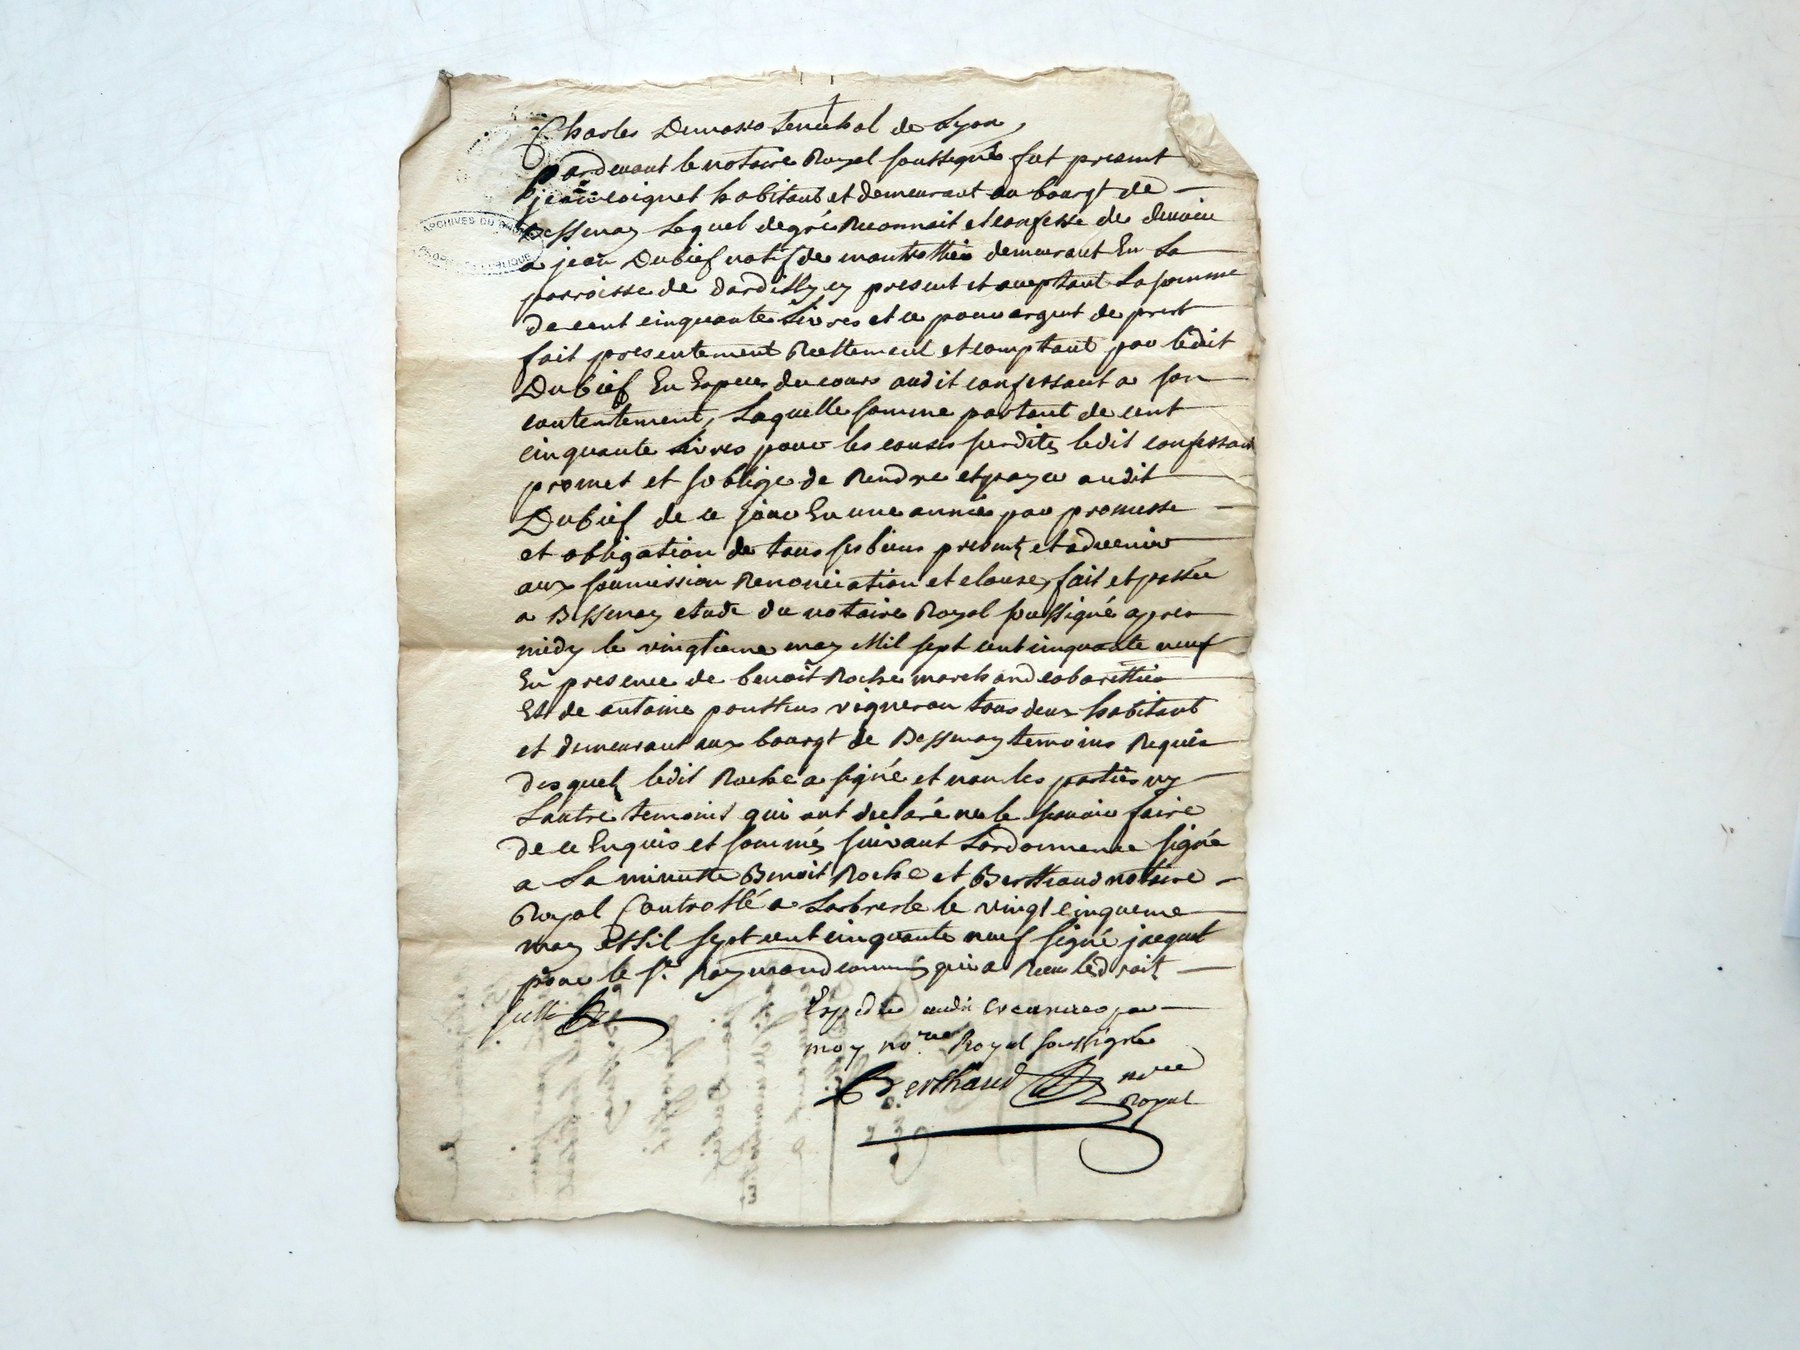 Charles Demasso senechal de Lyon,
Pardevant le notaire Royal soussigné fut present
jean coignet habitant et demeurant au bourgt de
Bessenay Lequel de gré Reconnait et confesse de devoir
a jean Dubief natif de montrottier demeurant En La
parroisse de dardilly cy present et acceptant La somme
de cent cinquante Livres et ce pour argent de prest
fait presentement Reellement et comptant par ledit
Dubief En Especes du cours audit confessant a son
contentement, Laquelle somme partant de cent
cinquante Livres pour les causes susdites ledit confessant
promet et soblige de Rendre et payer audit
Dubief de ce jour En une année par promesse
et obligation de tous ses biens presents et advenir
aux soumission Renonciation et clauses, fait et passée
a Bessenay etude du notaire Royal soussigné apres
midy le vingtieme may Mil sept cent cinquante neuf
En presence de benoit Roche marchand cabarettier
Et de antoine ponthus vigneron tous deux habitant
et demeurant aux bourgt de Bessenay temoins Requis
desquels ledit Roche a signé et non les parties ny
Lautre temoins qui ont declaré ne le scavoir faire
de ce Enquis et sommés suivant Lordonnence signé
a La minutte Benoit Roche et Berthaud notaire
Royal Controllé a Larbresle le vingt cinqueme
may Mil sept cent cinquante neuf signé jacquet
pour le Sr. Raymond commis qui a Receu le droit
Expedié audit creancier par
moy nore Royal soussignée
Berthaud nore
Royal
ARCHIVES DU